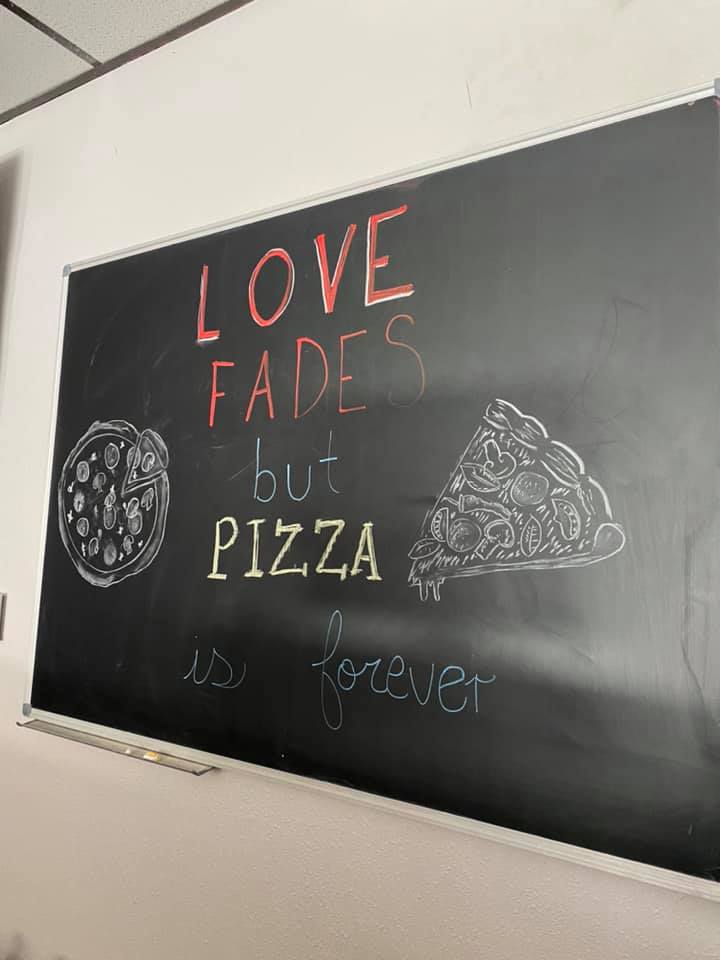 LOVE
FADES
but
PIZZA
is forever